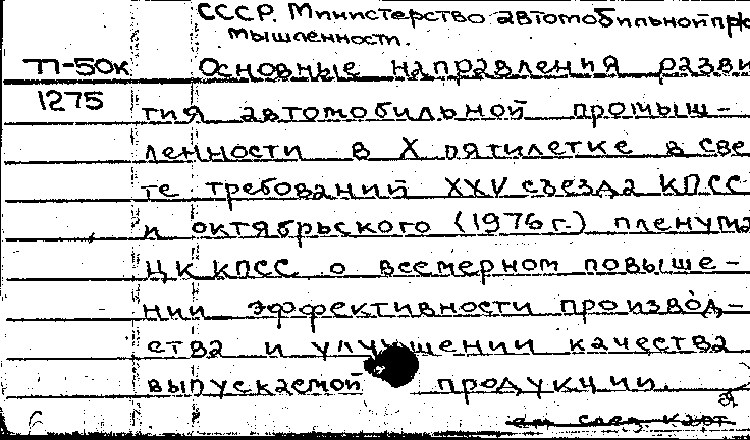 СССР. Министерство автомобильной про
мышленности.
77-50к Основные направления разви
1275 тия автомобильной промыш-
ленности в X пятилетке в све
те требований XXV съезда КПСС
и октябрьского (1976 г.) пленума
ЦК КПСС о всемерном повыше-
нии эффективности производ-
ства и улучшении качества
выпускаемой продукции.
см след карт